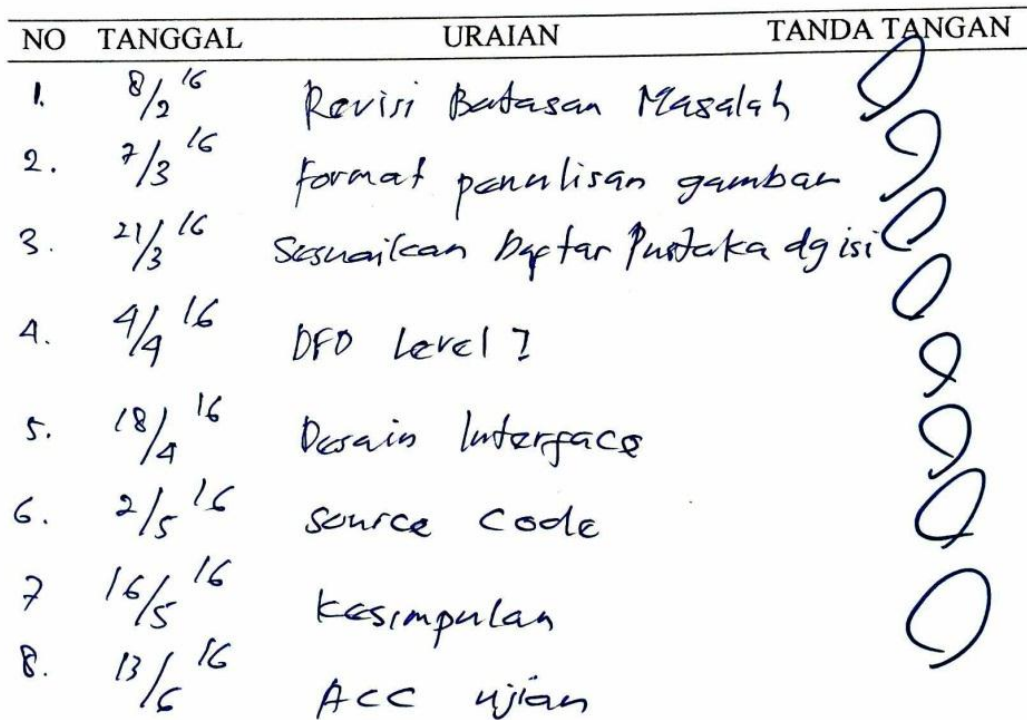 NO TANGGAL URAIAN TANDA TANGAN
1. 8/2 16 Revisi Batasan Masalah
2. 7/3 16 Format penulisan gambar
3. 21/3 16 Sesuaikan Daftar Pustaka dg isi
4. 4/4 16 DFD Level ?
5. 18/4 16 Desain Interface
6. 2/5 16 Source Code
7 16/5 16 Kesimpulan
8. 13/6 16 ACC ujian